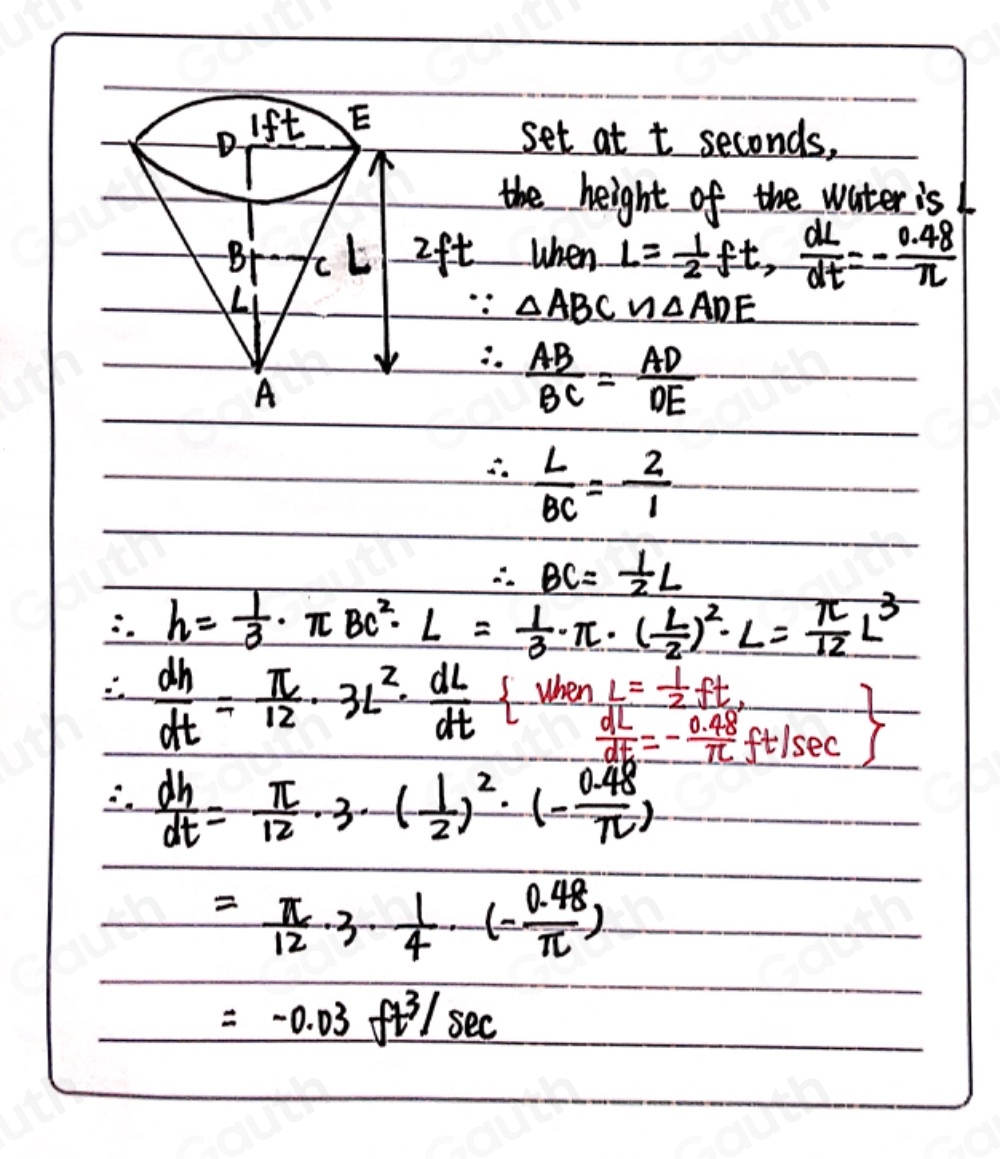 1ft E
D
B C L
L
A
2ft
Set at t seconds,
the height of the water is L
When L = 1/2 ft, dL/dt = - 0.48/π
∵ △ABC ∽ △ADE
∴ AB/BC = AD/DE
∴ L/BC = 2/1
∴ BC = 1/2 L
∴ h = 1/3 · π BC² · L = 1/3 · π · (L/2)² · L = π/12 L³
∴ dh/dt = π/12 · 3L² · dL/dt { when L = 1/2 ft,
dL/dt = - 0.48/π ft/sec }
∴ dh/dt = π/12 · 3 · (1/2)² · (- 0.48/π)
= π/12 · 3 · 1/4 · (- 0.48/π)
= -0.03 ft³/sec
Gauth